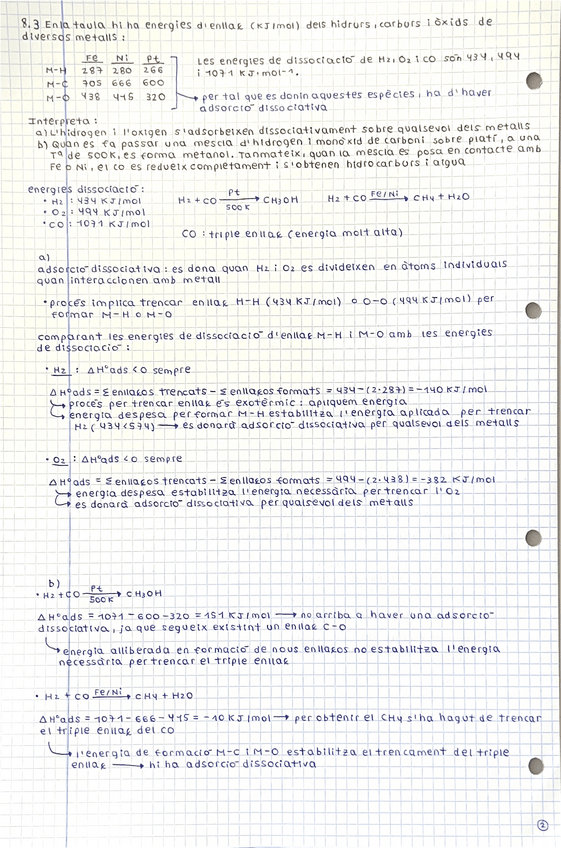 8.3 En la taula hi ha energies d'enllaç (KJ/mol) dels hidrurs, carburs i òxids de
diversos metalls:
Fe Ni Pt
M-H 287 280 266
M-C 705 666 600
M-O 438 415 320
Les energies de dissociació de H2, O2 i CO són 434, 494
i 1071 KJ·mol-1.
per tal que es donin aquestes espècies, ha d'haver
adsorció dissociativa
Interpreta:
a) L'hidrogen i l'oxigen s'adsorbeixen dissociativament sobre qualsevol dels metalls
b) Quan es fa passar una mescla d'hidrogen i monòxid de carboni sobre platí, a una
Tª de 500K, es forma metanol. Tanmateix, quan la mescla es posa en contacte amb
Fe o Ni, el CO es redueix completament i s'obtenen hidrocarburs i aigua
energies dissociació:
• H2: 434 KJ/mol
• O2: 494 KJ/mol
• CO: 1071 KJ/mol
H2 + CO Pt → 500K CH3OH
H2 + CO Fe/Ni → CH4 + H2O
CO: triple enllaç (energia molt alta)
a)
adsorció dissociativa: es dona quan H2 i O2 es divideixen en àtoms individuals
quan interaccionen amb metall
• procés implica trencar enllaç H-H (434 KJ/mol) o O-O (494 KJ/mol) per
formar M-H o M-O
comparant les energies de dissociació d'enllaç M-H i M-O amb les energies
de dissociació:
• H2: ΔHºads < 0 sempre
ΔHºads = Σ enllaços trencats - Σ enllaços formats = 434 - (2·287) = -140 KJ/mol
→ procés per trencar enllaç és exotèrmic: apliquem energia
→ energia despesa per formar M-H estabilitza l'energia aplicada per trencar
H2 (434<574) → es donarà adsorció dissociativa per qualsevol dels metalls
• O2: ΔHºads < 0 sempre
ΔHºads = Σ enllaços trencats - Σ enllaços formats = 494 - (2·438) = -382 KJ/mol
→ energia despesa estabilitza l'energia necessària per trencar l'O2
→ es donarà adsorció dissociativa per qualsevol dels metalls
b)
• H2 + CO Pt → 500K CH3OH
ΔHºads = 1071 - 600 - 320 = 151 KJ/mol → no arriba a haver una adsorció
dissociativa, ja que segueix existint un enllaç C-O
→ energia alliberada en formació de nous enllaços no estabilitza l'energia
necessària per trencar el triple enllaç
• H2 + CO Fe/Ni → CH4 + H2O
ΔHºads = 1071 - 666 - 415 = -10 KJ/mol → per obtenir el CH4 s'ha hagut de trencar
el triple enllaç del CO
→ l'energia de formació M-C i M-O estabilitza el trencament del triple
enllaç → hi ha adsorció dissociativa
2